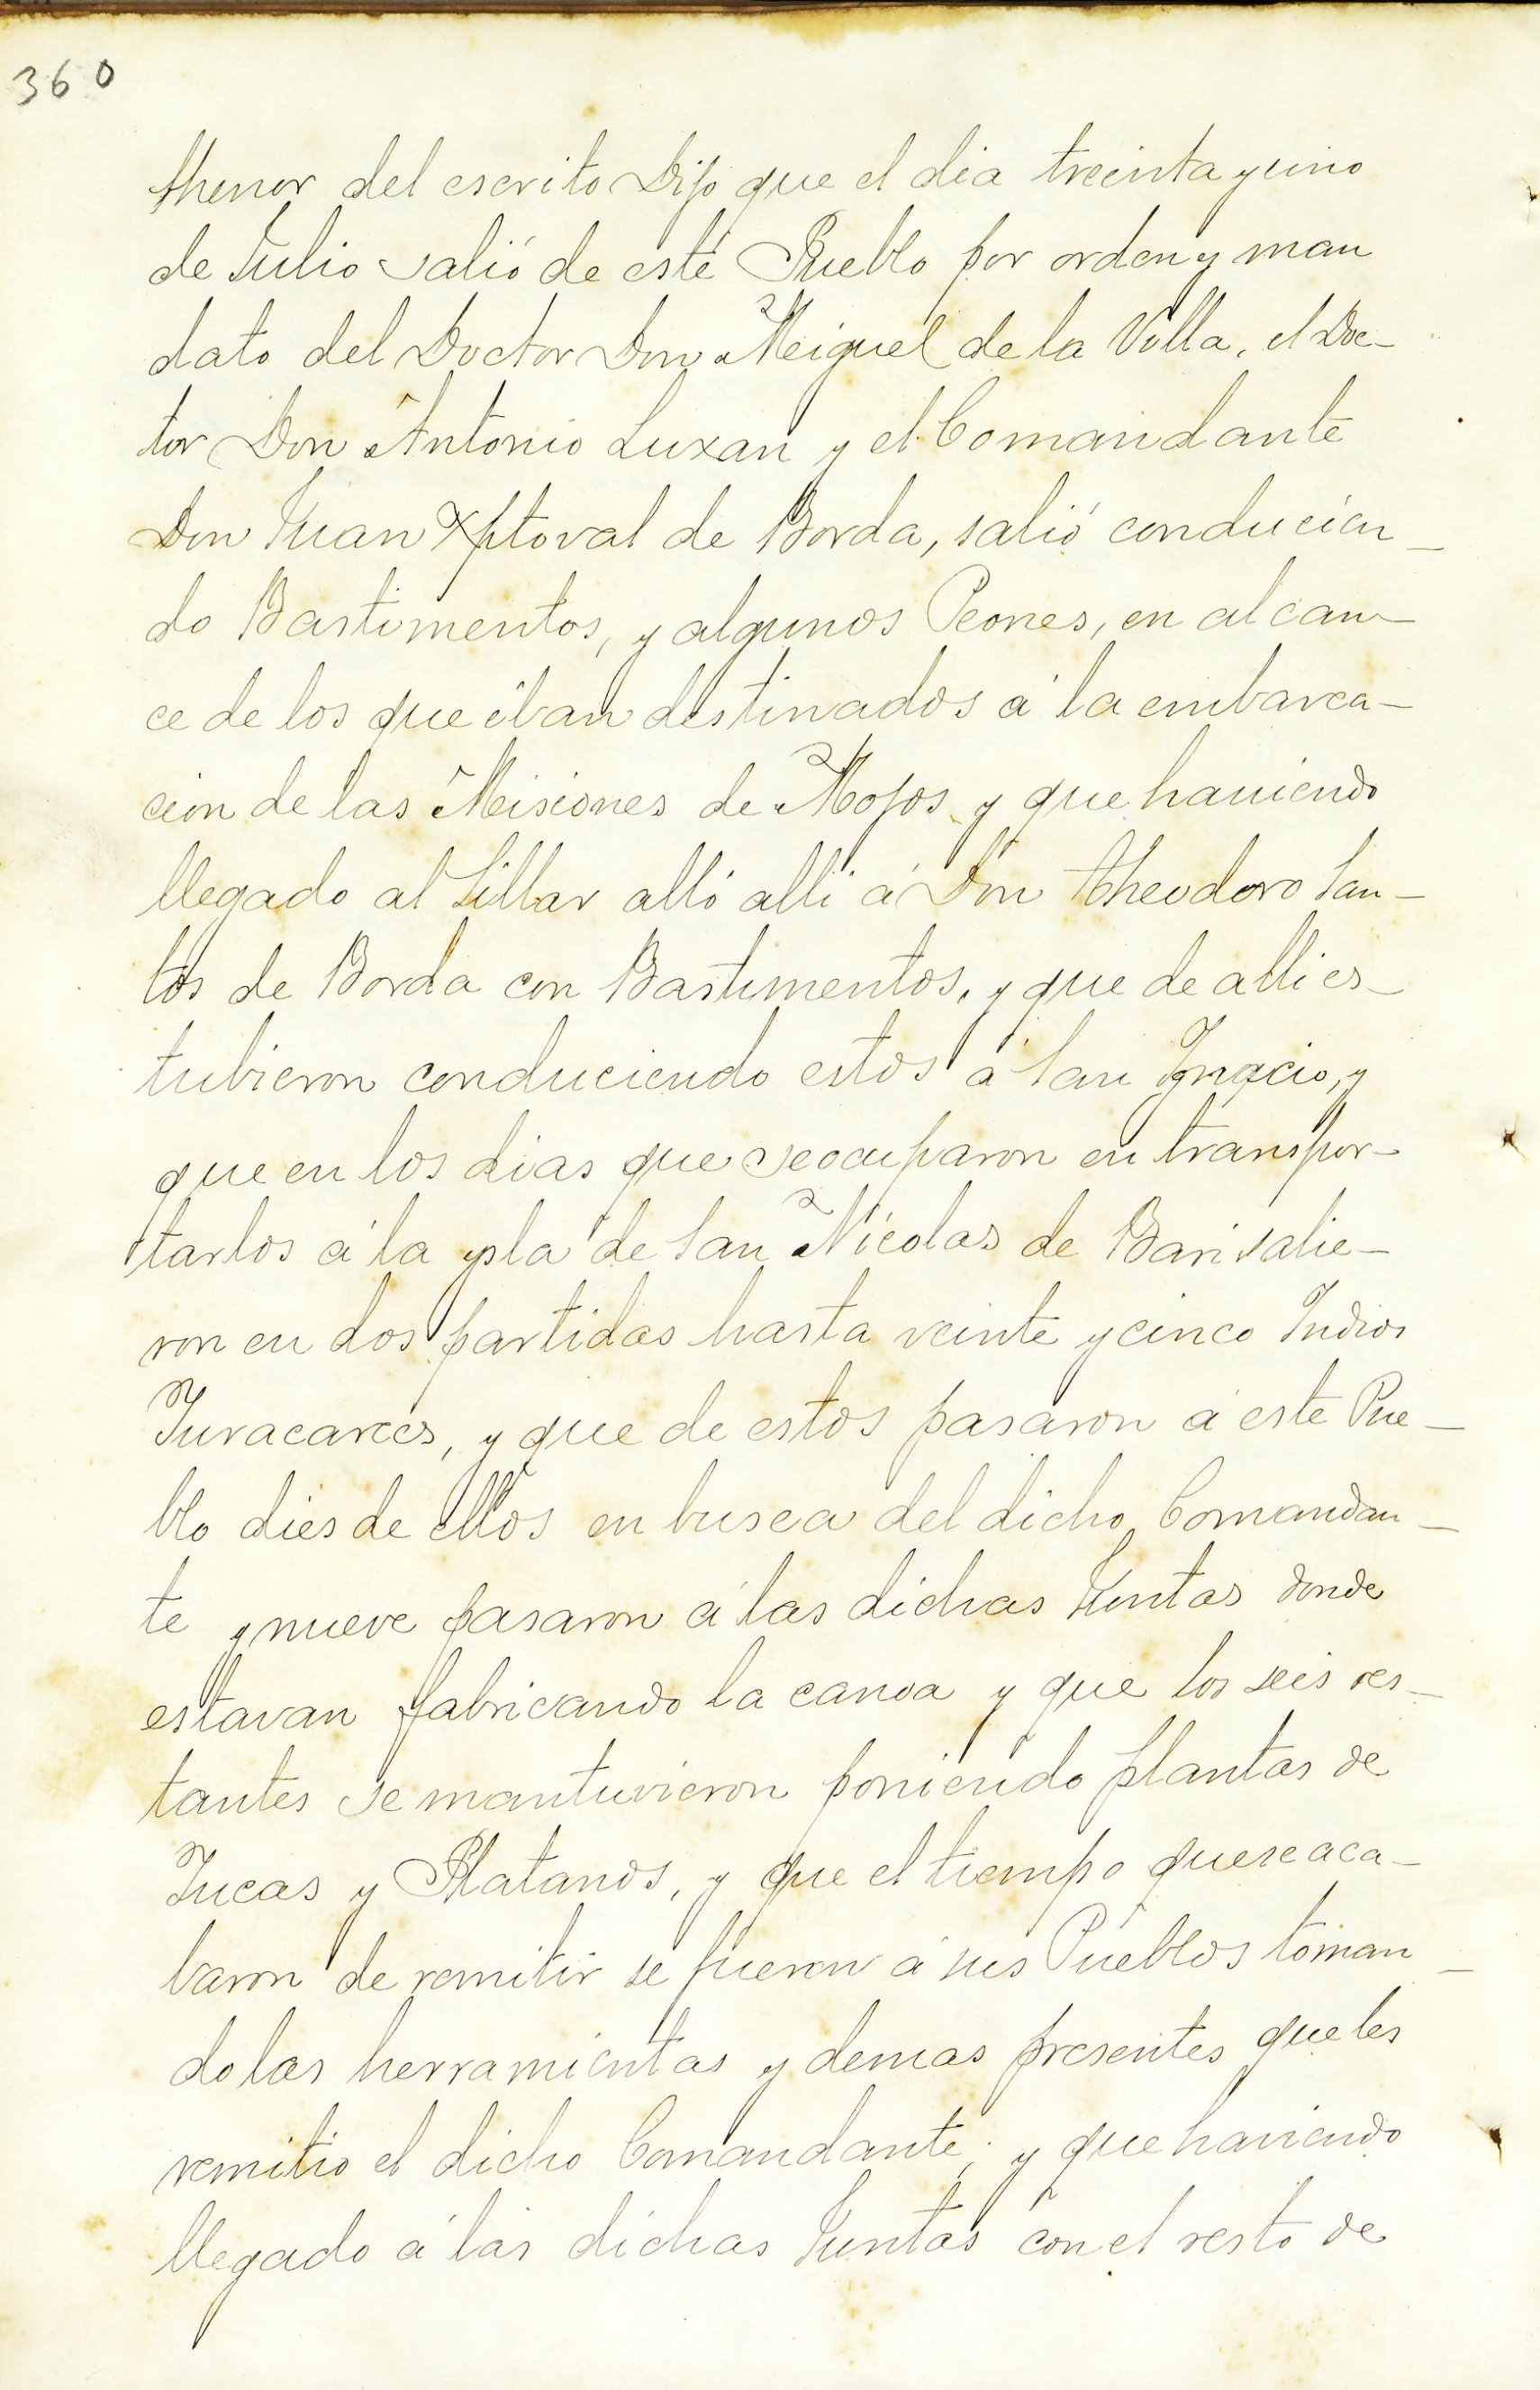 360
thenor del escrito Dijo que el dia treinta y uno
de Julio salió de este Pueblo por orden y man
dato del Doctor Don Meiguel de la Villa, el Doc-
tor Don Antonio Luxan y el Comandante
Don Juan Xptoval de Borda, salió conducien-
do Bastimentos, y algunos Peones, en alcan-
ce de los que iban destinados á la embarca-
cion de las Meisiones de Mojos y que haviendo
llegado al Sillar alló alli á Don Theodoro San-
tos de Borda con Bastimentos, y que de alli es-
tubieron conduciendo estos á San Ygnacio, y
que en los dias que se ocuparon en transpor-
tarlos á la ysla de San Nicolas de Bari salie-
ron en dos partidas hasta veinte y cinco Indios
Yuracarees, y que de estos pasaron á este Pue-
blo dies de ellos en busca del dicho Comandan-
te y nueve pasaron á las dichas Juntas donde
estavan fabricando la canoa y que los seis res-
tantes se mantuvieron poniendo plantas de
Yucas y Platanos, y que el tiempo que se aca-
baron de remitir se fueron á sus Pueblos toman-
do las herramientas y demas presentes que les
remitio el dicho Comandante; y que haviendo
llegado á las dichas Juntas con el resto de